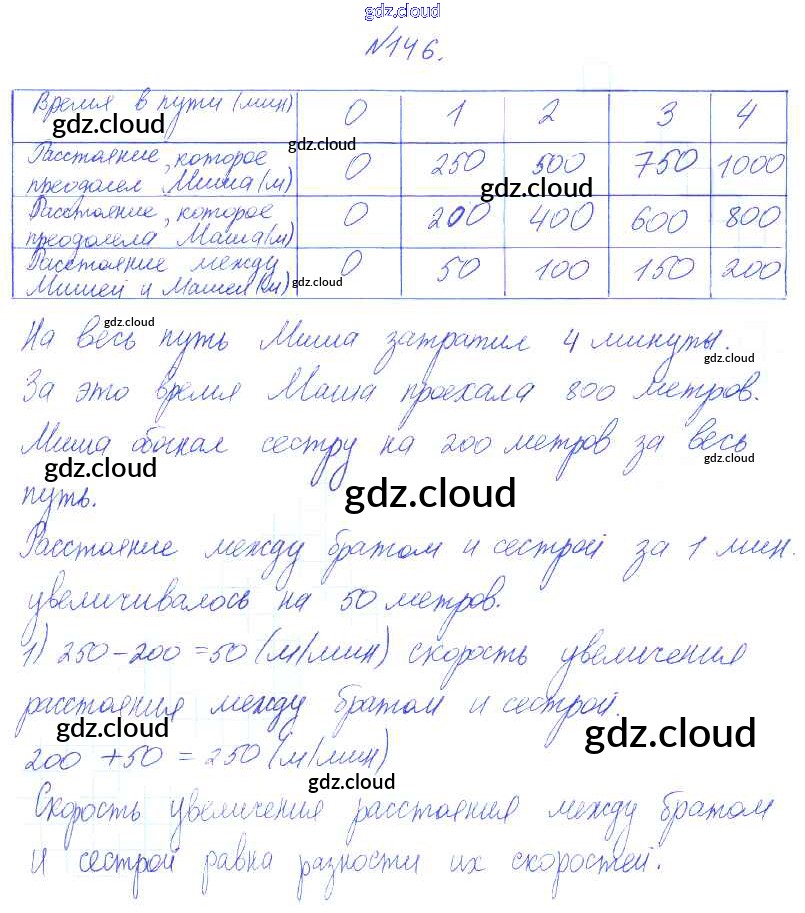 gdz.cloud
№146.
Время в пути (мин) 0 1 2 3 4
gdz.cloud
gdz.cloud
Расстояние, которое
преодолел Миша (м) 0 250 500 750 1000
gdz.cloud
Расстояние, которое
преодолела Маша (м) 0 200 400 600 800
Расстояние между
Мишей и Машей (м) 0 50 100 150 200
gdz.cloud
На весь путь Миша затратил 4 минуты.
gdz.cloud
За это время Маша проехала 800 метров.
Миша обогнал сестру на 200 метров за весь
gdz.cloud
gdz.cloud
путь.
gdz.cloud
Расстояние между братом и сестрой за 1 мин.
увеличивалось на 50 метров.
1) 250-200=50 (м/мин) скорость увеличения
расстояния между братом и сестрой.
gdz.cloud
gdz.cloud
200+50=250 (м/мин)
gdz.cloud
Скорость увеличения расстояния между братом
и сестрой равна разности их скоростей.